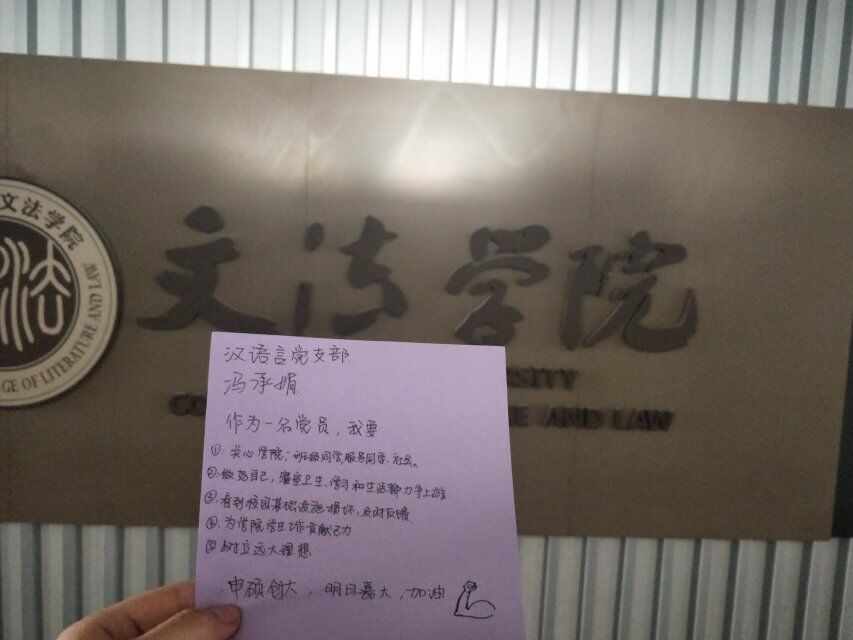 文法学院
GE OF LITERATURE AND LAW
文法学院
SITY
CO E AND LAW
汉语言党支部
冯承娟
作为一名党员，我要
①关心学院；班级同学服务同学、社会。
②做好自己，寝室卫生、学习和生活都力争上游
③看到校园基础设施损坏，及时反馈
④为学院学生工作贡献己力
⑤树立远大理想
申硕创大，明日嘉大，加油